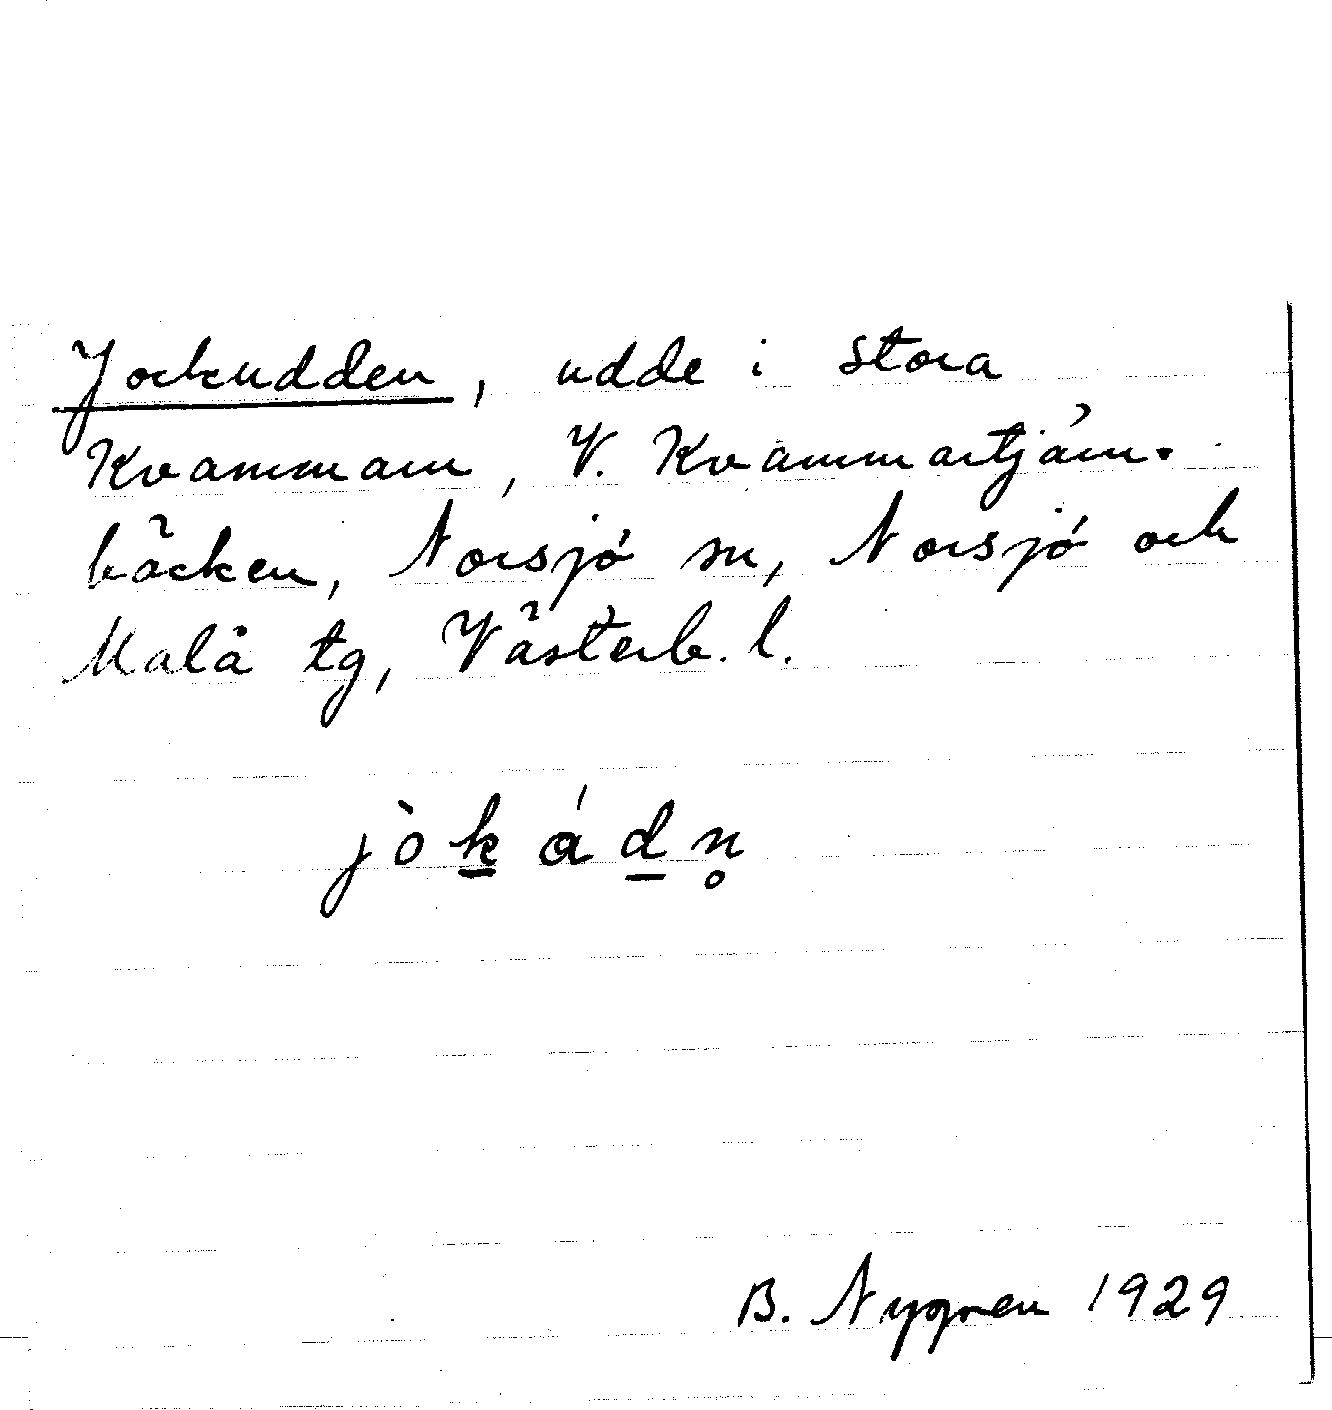 Jockudden, udde i stora
Kvammarn, V. Kvammartjärn-
bäcken, Norsjö sn, Norsjö och
Malå tg, Västerb. l.
jòk̲ád̲n̥
B. Nygren 1929